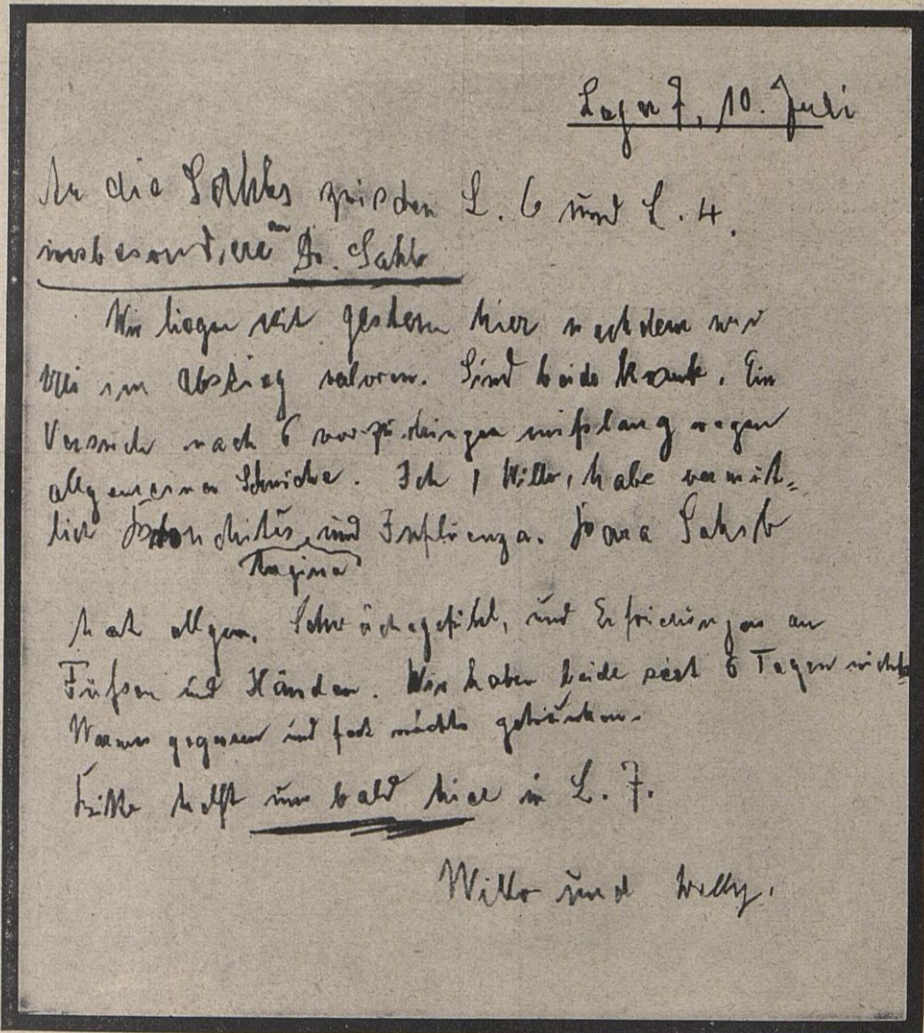 Lager 7, 10. Juli
An die Sahibs zwischen L. 6 und L. 4.
insbesondere an Dr. Sahib
Wir liegen seit gestern hier nachdem wir
Uli im Abstieg verloren. Sind beide krank. Ein
Versuch nach 6 vorzudringen mißlang wegen
allgemeiner Schwäche. Ich, Willo, habe vermut-
lich Bronchitis, und Influenza. Bara Sahib
Angina
hat allgem. Schwächegefühl, und Erfrierungen an
Füßen und Händen. Wir haben beide seit 6 Tagen nichts
Warmes gegessen und fast nichts getrunken.
Bitte helft uns bald hier in L. 7.
Willo und Willy.